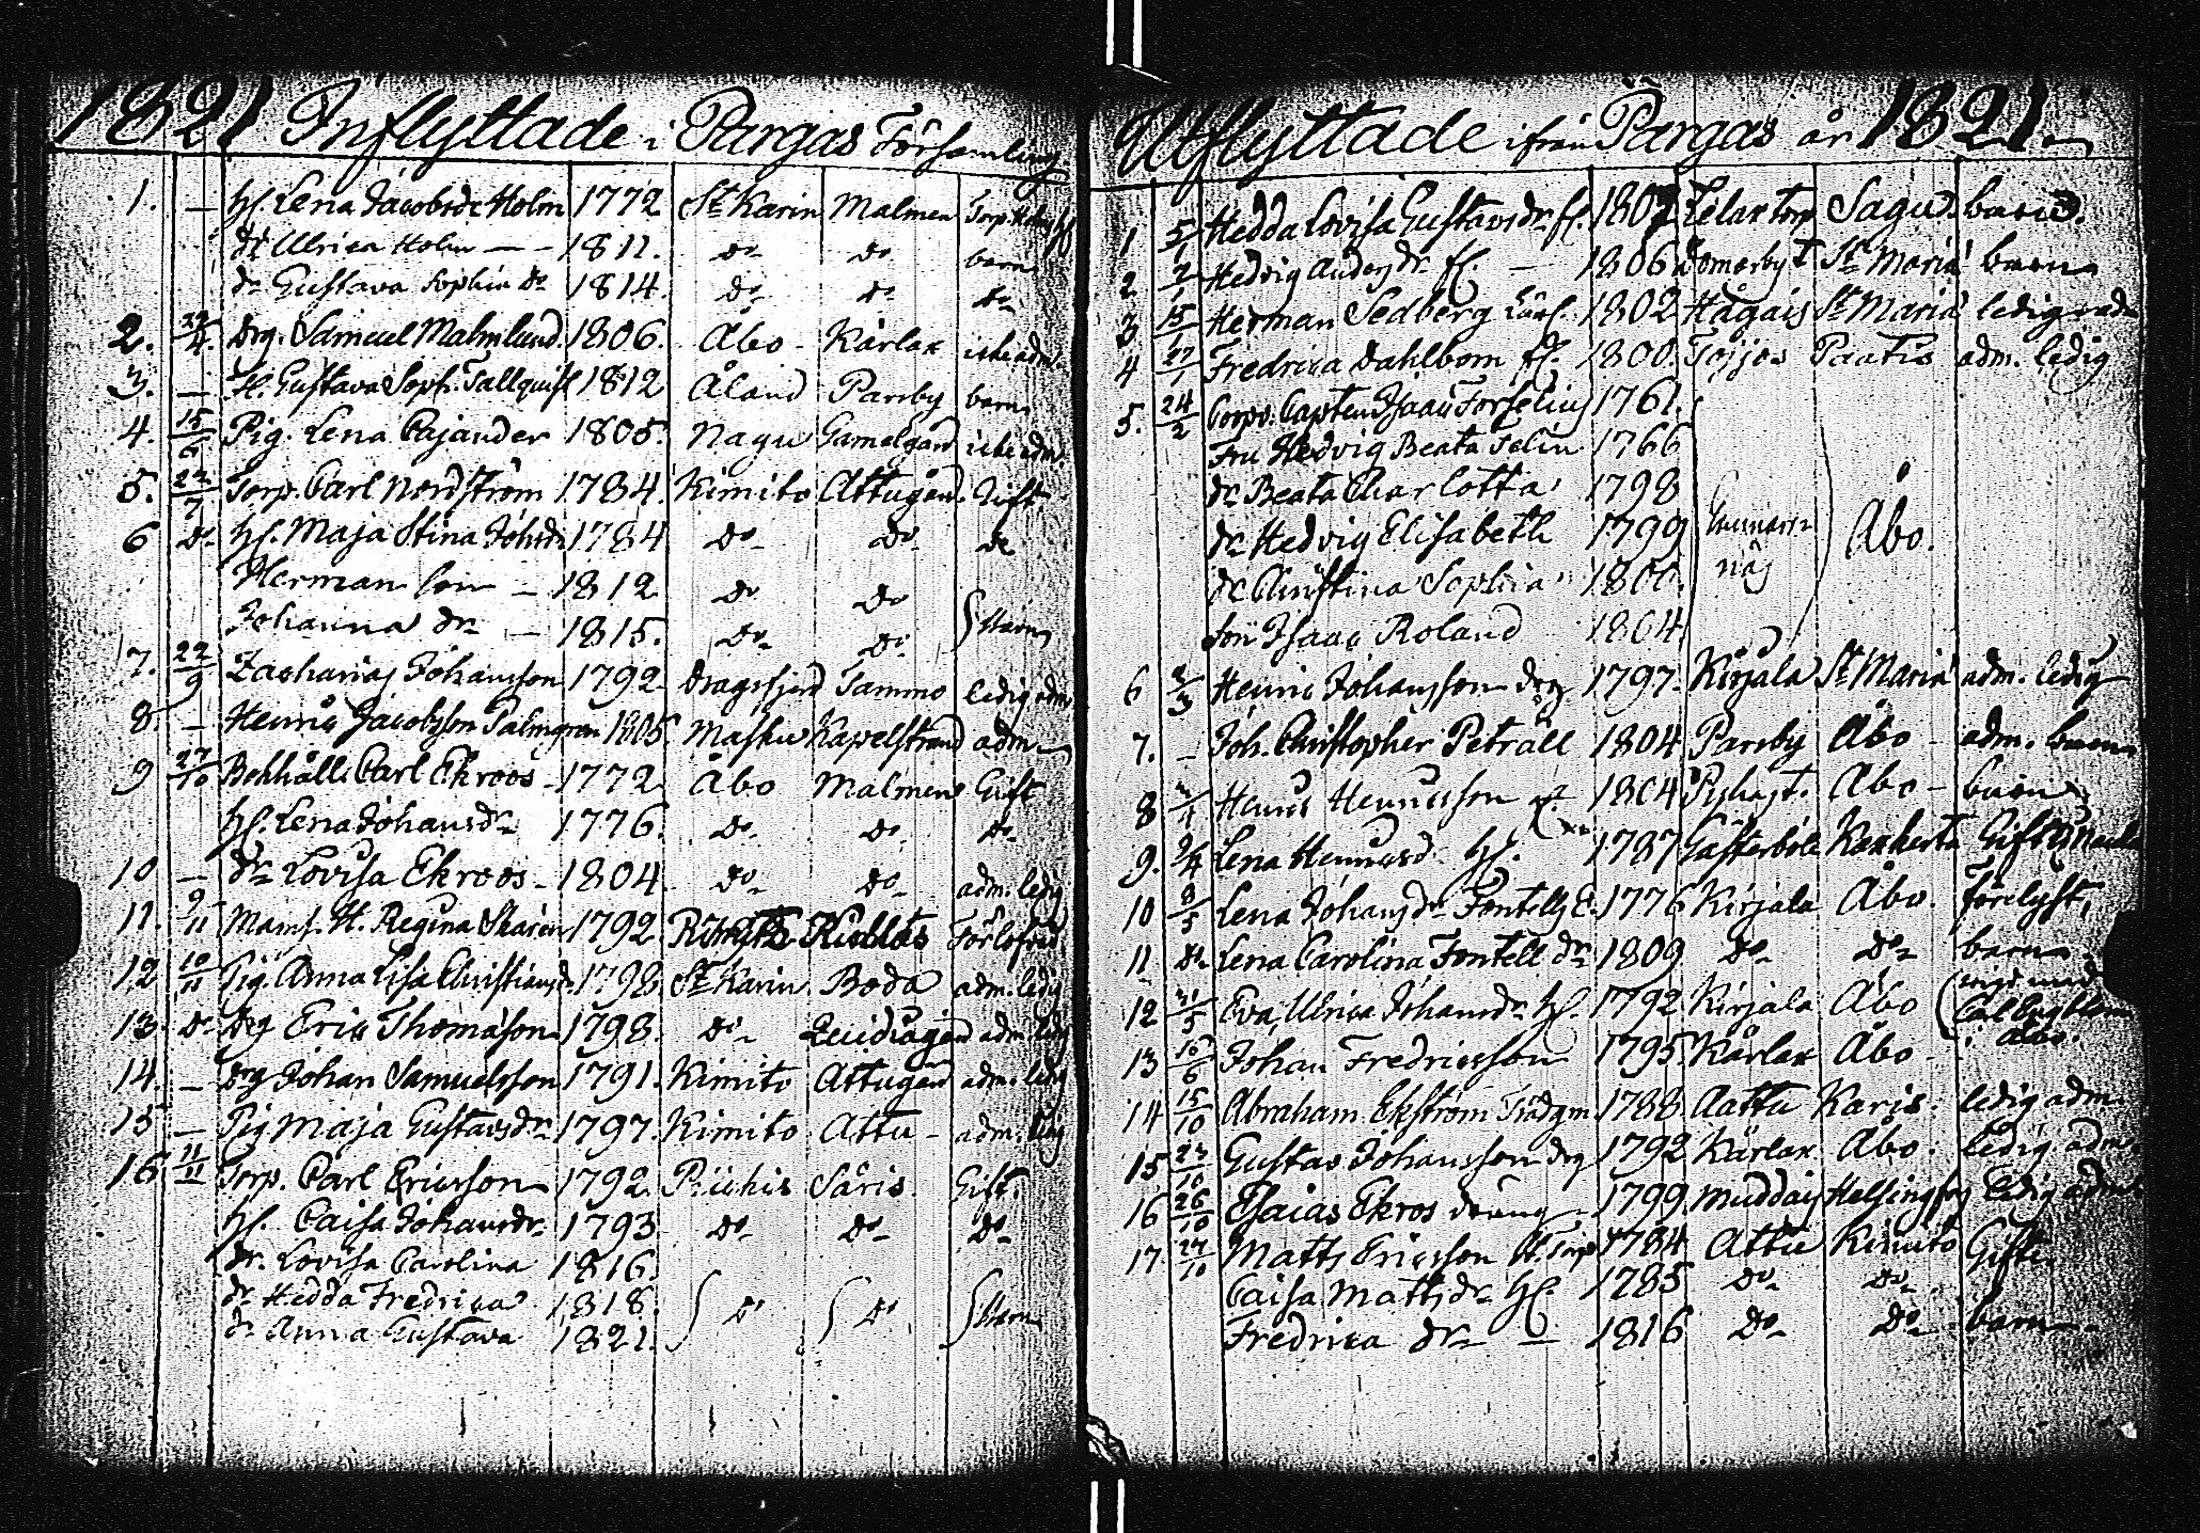 1821 Inflyttade i Pargas Församling.
1. — Hu. Lena Jacobsdr Holm 1772 St Karin Malmen Torp
dr Ulrica Holm — 1811. do do barn
dr Gustava Sophia do 1814. do do do
2. 4. Drg. Samuel Malmlund. 1806. Åbo - Kårlax icke adm.
3. — H. Gustava Soph. Tallquist 1812 Åland Parsby barn
4. 15/6 Pig. Lena Cajander 1805. Nagu Gamelgård icke adm.
5. 22/7 Torp. Carl Nordström 1784. Kimito Attugård. Gift.
6 do Hu. Maja Stina Johsdr 1784 do do do
Herman son — 1812 do do
Johanna dr — 1815. do do barn
7. 22/9 Zacharias Johansson 1792 Dragsfjerd Tammo ledig adm
8. — Henric Jacobsson Palmgren 1805. Masku Kapelstrand adm
9 27/10 Bokhåll. Carl Ekroos - 1772 Åbo Malmen Gift
Hu. Lena Johansdr 1776. do do do
10 — dr Lovisa Ekroos - 1804. do do adm. ledig
11. 9/11 Mams. H. Regina Skarén 1792
12 10/11 Pig. Anna Lisa Christiansdr 1798. St Karin Boda adm. ledig
13. do Drg Eric Thomasson 1798. do adm. ledig
14. — Drg Johan Samuelsson 1791. Kimito Attugård adm. ledig
15 — Pig Maja Gustavsdr 1797. Kimito Attu - adm. ledig
16 11/11 Torp. Carl Ericsson 1792. Piickis Såris. Gift.
Hu. Caisa Johansdr 1793 do do do
dr. Lovisa Carolina 1816.
dr Hedda Fredrica 1818. do do barn
dr Anna Gustava 1821.
Utflyttade ifrån Pargas år 1821.
1 5/1 Hedda Lovisa Gustavsdr fl. 1807 torp Sagu. barn.
2 2/1 Hedvig Andersdr fl. — 1806 St Mariä barn
3 15/1 Herman Sedberg 1802 Hågais St Mariä ledig adm
4 27/1 Fredrica Dahlbom fl. 1800. Tojjos Paatis adm. ledig
5. 24/2 Corps. Capten Isaac Forselius 1761.
Fru Hedvig Beata Felin 1766
dr Beata Charlotta 1798
dr Hedvig Elisabeth 1799 Gunnars- Åbo.
dr Christina Sophia 1800. näs
son Isaac Roland 1804
6 2/3 Henric Johansson drg 1797. Kirjala St Mariä adm. ledig
7. — Joh. Christopher Petrall 1804 Parsby Åbo - adm. barn
8 Henric Henricsson 1804 Åbo - barn
9. Lena Henricsdr Hu. 1787 Gästerböle Gift
10 8/5 Lena Johansdr Fontells E. 1776 Kirjala Åbo.
11 do Lena Carolina Fontell dr 1809 do do barn
12 21/5 Eva Ulrica Johansdr Hu. 1792 Kirjala Åbo (vigd med Carl Engblom i Åbo.
13 16/6 Johan Fredricsson 1795 Kårlax Åbo -
14 15/10 Abraham Ekström Trädgm 1788. Aattu Karis. ledig adm.
15 23/10 Gustav Johansson drg 1792 Kårlax Åbo. ledig adm.
16 26/10 Esaias Ekros dräng - 1799. Muddais Helsingfors ledig adm.
17. 27/10 Matts Ericsson Torp 1784 Attu Kimito Gift.
Caisa Mattsdr Hu. 1785 do do
Fredrica dr — 1816 do do barn.